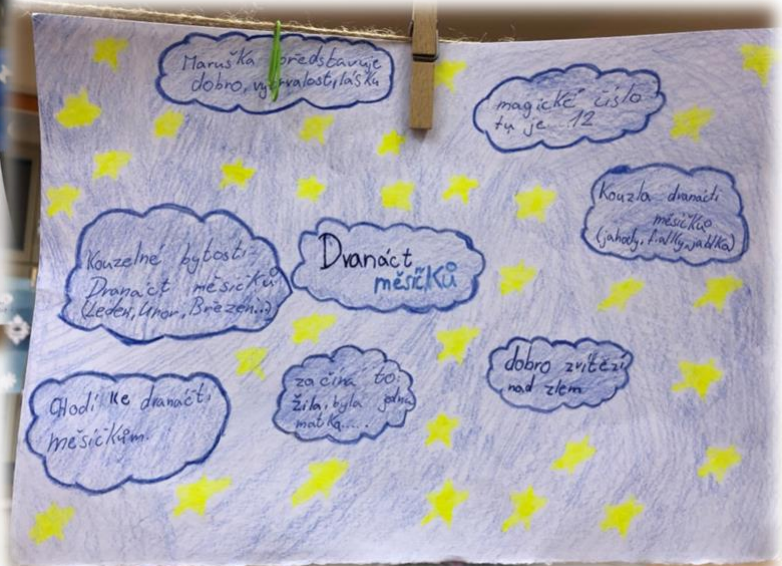 Maruška představuje
dobro, vytrvalost, lásku
magické číslo
tu je 12
Kouzla dvanácti
měsíčků
(jahody, fialky, jablka)
Kouzelné bytosti:
Dvanáct měsíčků
(Leden, Únor, Březen...)
Dvanáct
měsíčků
dobro zvítězí
nad zlem
začíná to:
žila, byla jedna
matka.....
Chodí ke dvanácti
měsíčkům.